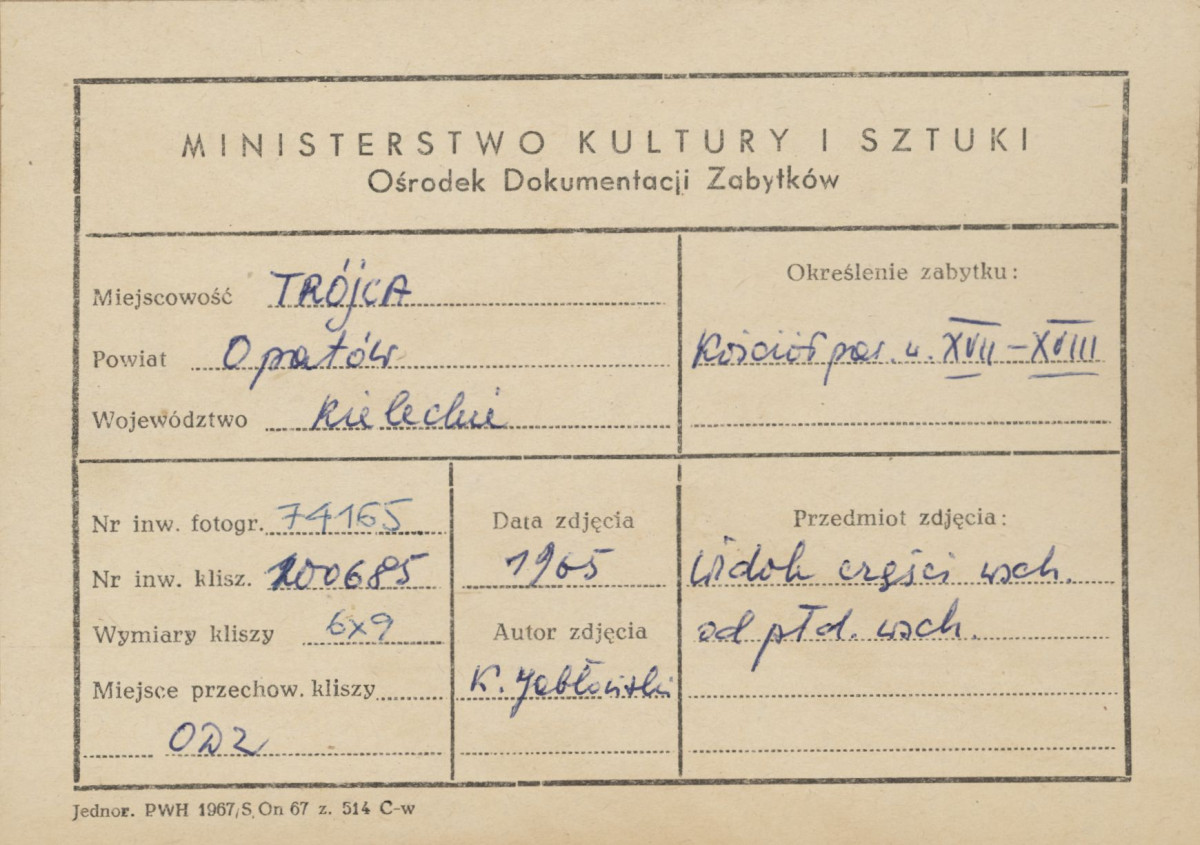 MINISTERSTWO KULTURY I SZTUKI
Ośrodek Dokumentacji Zabytków
Miejscowość TRÓJCA
Powiat Opatów
Województwo Kieleckie
Określenie zabytku:
Kościół par. w. XVII – XVIII
Nr inw. fotogr. 74165
Nr inw. klisz. 100685
Wymiary kliszy 6x9
Miejsce przechow. kliszy
ODZ
Data zdjęcia
1965
Autor zdjęcia
K. Jabłoński
Przedmiot zdjęcia:
Widok części wsch.
od płd. wsch.
Jednor. PWH 1967/S. On 67 z. 514 C-w